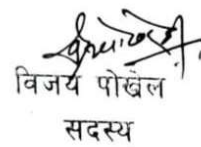 विजय पोखेल
सदस्य